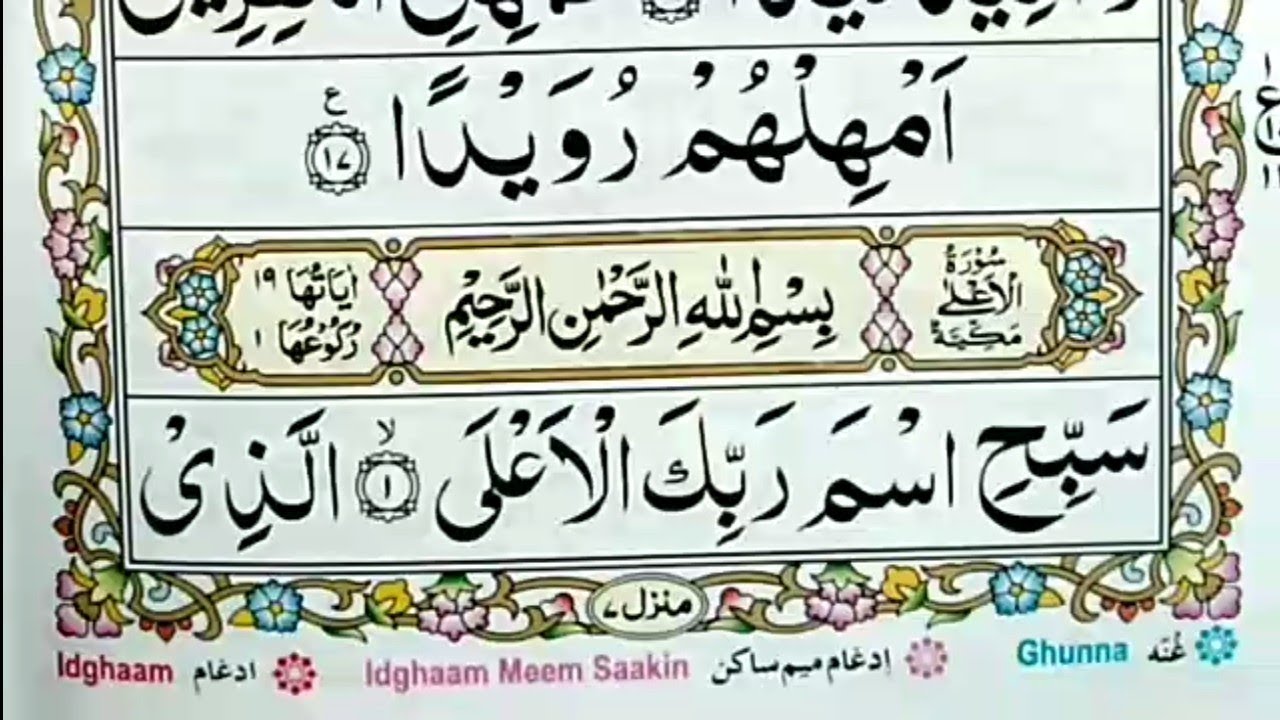 اَمْهِلْهُمْ رُوَيْدًا ۝١٧ ع
سُوْرَةُ الْاَعْلٰى مَكِّيَّةٌ
بِسْمِ اللّٰهِ الرَّحْمٰنِ الرَّحِيْمِ
اٰيَاتُهَا ١٩
رُكُوْعُهَا ١
سَبِّحِ اسْمَ رَبِّكَ الْاَعْلَى ۝١ ۙ الَّذِىْ
منزل ٧
Idghaam ادغام Idghaam Meem Saakin ادغام میم ساکن Ghunna غُنّه